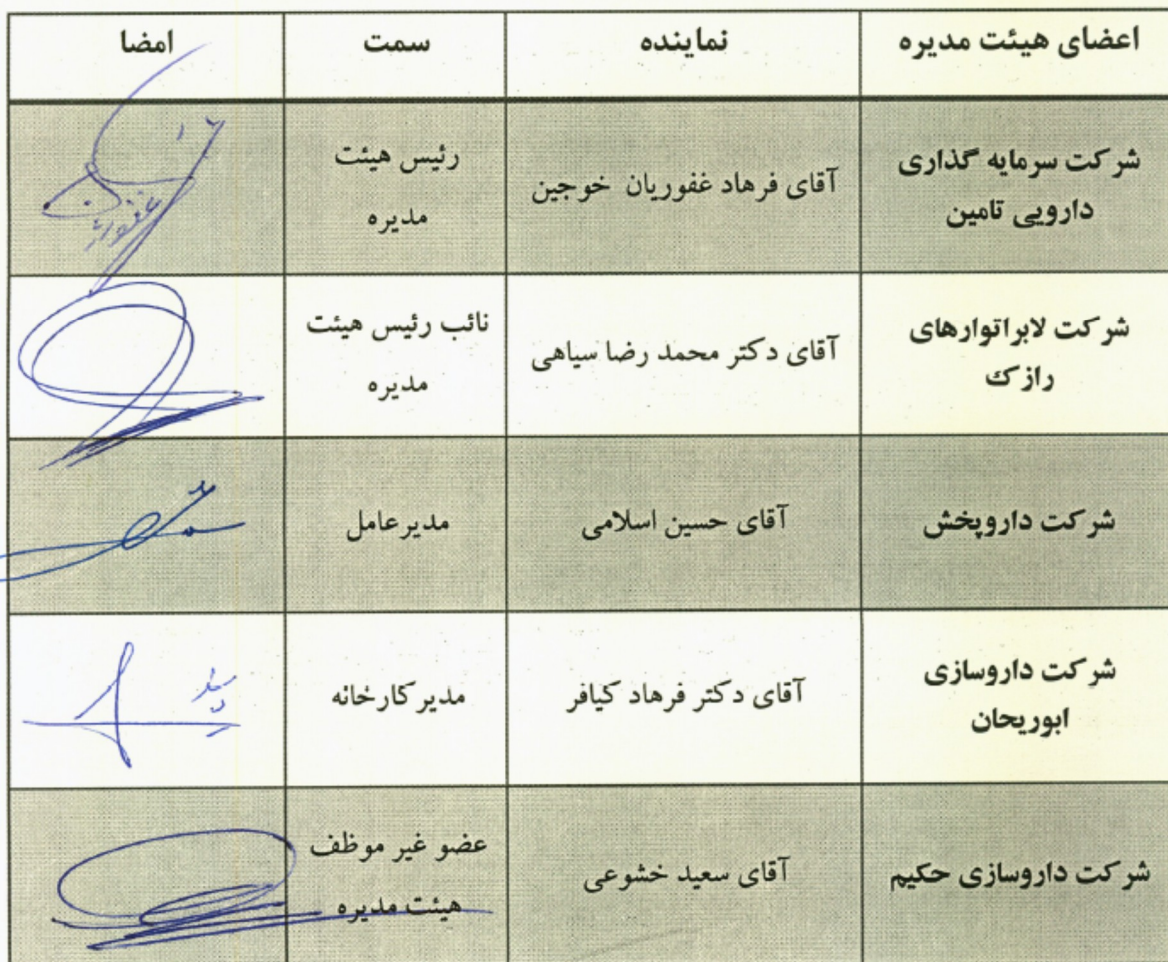 اعضای هیئت مدیره نماینده سمت امضا
شرکت سرمایه گذاری
دارویی تامین
آقای فرهاد غفوریان خوجین
رئیس هیئت
مدیره
شرکت لابراتوارهای
رازک
آقای دکتر محمد رضا سیاهی
نائب رئیس هیئت
مدیره
شرکت داروپخش
آقای حسین اسلامی
مدیرعامل
شرکت داروسازی
ابوریحان
آقای دکتر فرهاد کیافر
مدیرکارخانه
شرکت داروسازی حکیم
آقای سعید خشوعی
عضو غیر موظف
هیئت مدیره